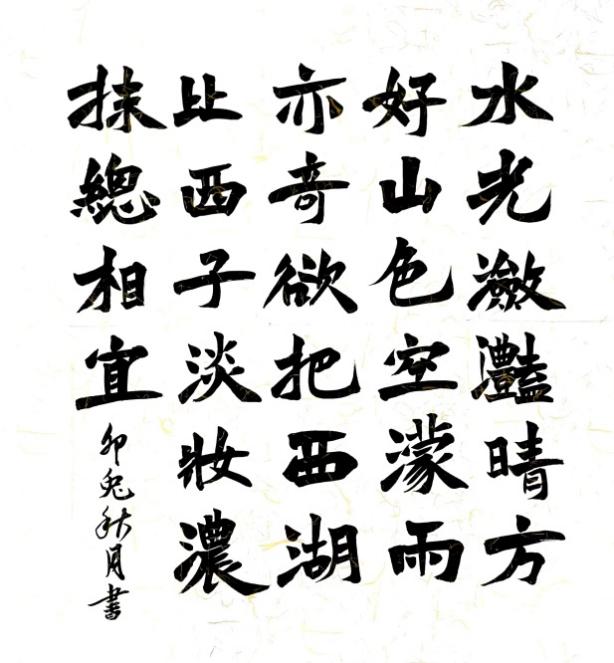 水光瀲灩晴方
好山色空濛雨
亦奇欲把西湖
比西子淡妝濃
抹總相宜
卯兔秋月書